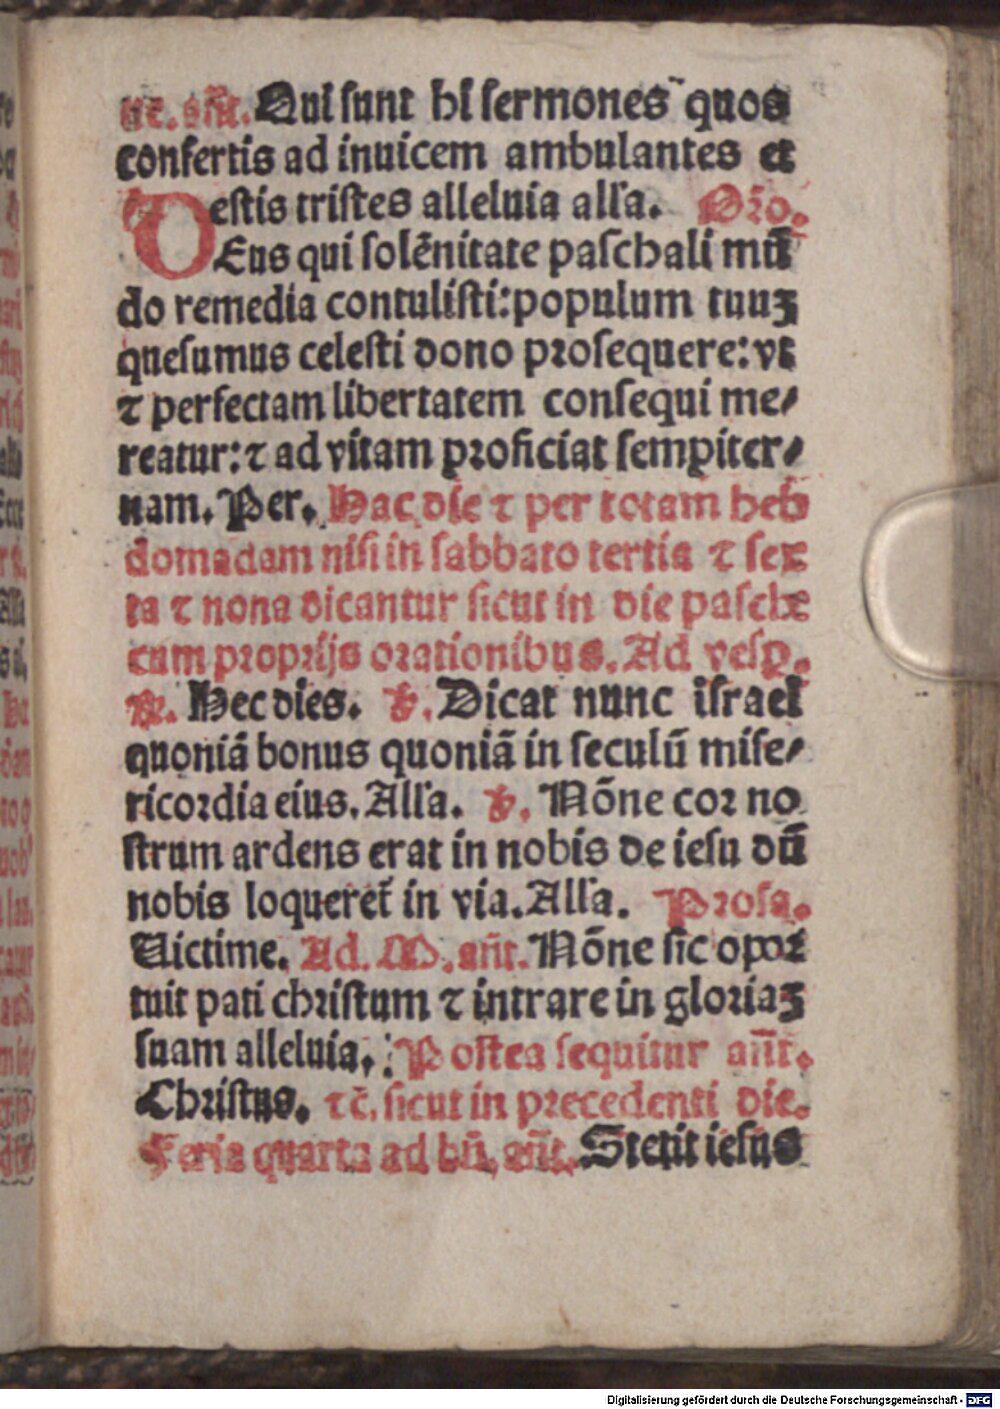 ne. añt. Qui sunt hi sermones quos
confertis ad inuicem ambulantes et
estis tristes alleluia alľa. Oŕo.
DEus qui solēnitate paschali mū
do remedia contulisti: populum tuuꝫ
quesumus celesti dono prosequere: vt
⁊ perfectam libertatem consequi me/
reatur: ⁊ ad vitam proficiat sempiter/
nam. Per. Hac die ⁊ per totam heb
domadam nisi in sabbato tertia ⁊ sex
ta ⁊ nona dicantur sicut in die pasche
cum proprijs orationibus. Ad vesꝑ.
℟. Hec dies. ℣. Dicat nunc israel
quoniā bonus quoniā in seculū mise/
ricordia eius. Alľa. ℣. Nōne cor no
strum ardens erat in nobis de iesu dū
nobis loqueret̃ in via. Alľa. Prosa.
Uictime. Ad. M. añt. Nōne sic opor
tuit pati christum ⁊ intrare in gloriaꝫ
suam alleluia. : Postea sequitur añt.
Christus. ⁊c̄. sicut in precedenti die.
Feria quarta ad bñ. añt. Stetit iesus
Digitalisierung gefördert durch die Deutsche Forschungsgemeinschaft - DFG